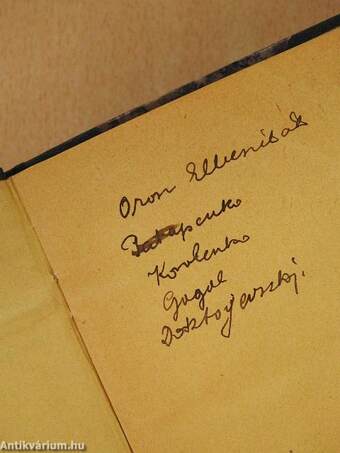 Orosz Elbeszélések
Potapenko
Korolenko
Gogol
Dosztojevszkj.
Antikvárium.hu